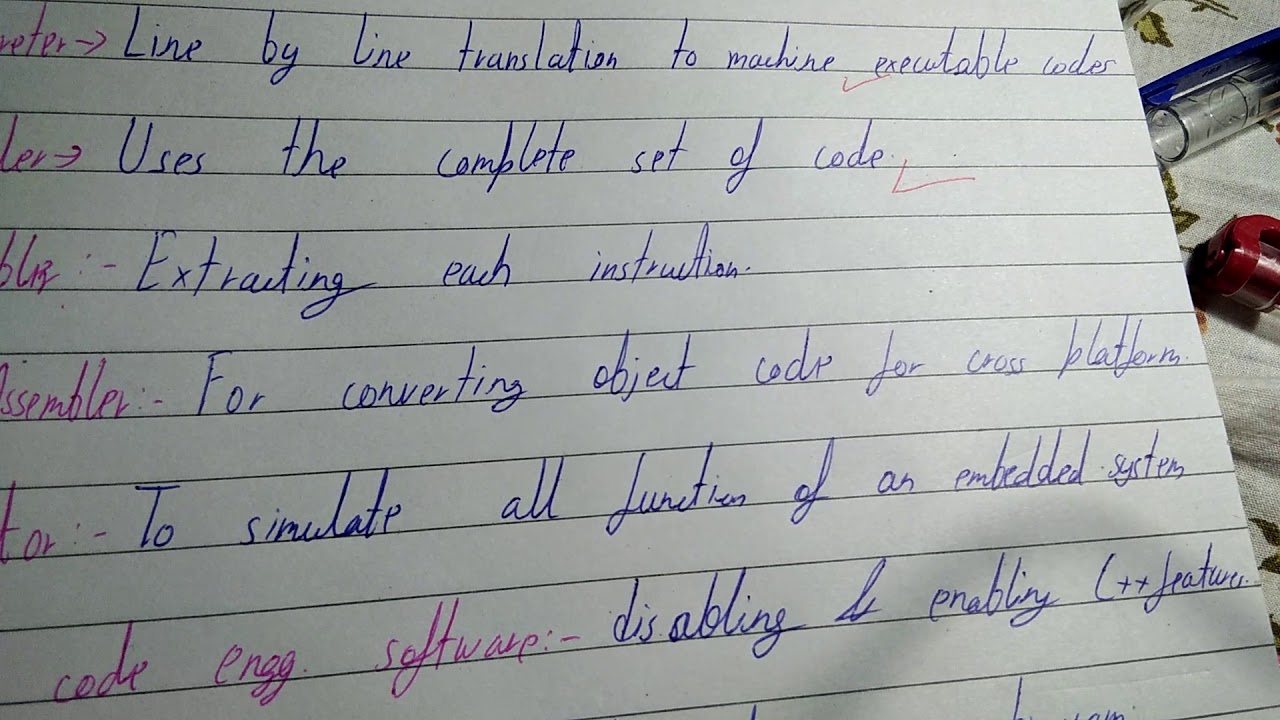 reter→ Line by line translation to machine executable codes
ler→ Uses the complete set of code.
:- Extracting each instruction.
Assembler:- For converting object code for cross platform.
tor:- To simulate all function of an embedded system
code engg. software:- disabling & enabling C++ features.